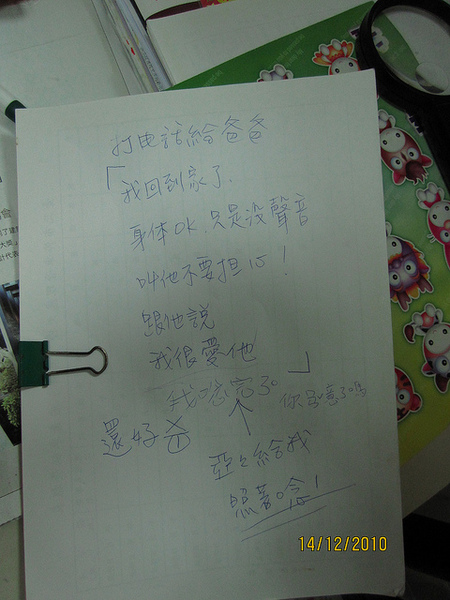 打电話給爸爸
「我回到家了.
身体OK,只是没聲音
叫他不要担心!
跟他說
我很愛他 」
我唸完了。
你滿意了嗎
還好
亞々給我
照著唸!
14/12/2010